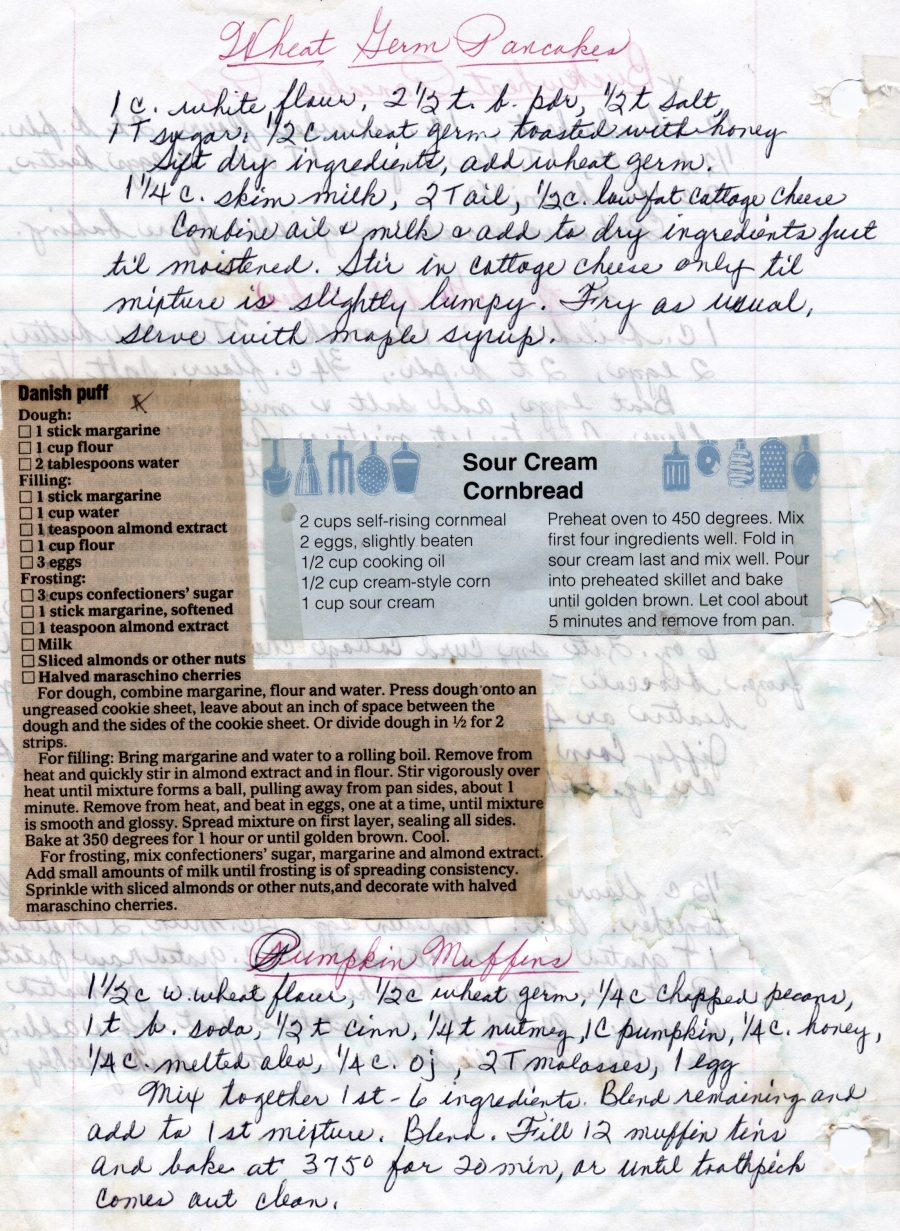 Wheat Germ Pancakes
1 c. white flour, 2 1/2 t. b. pdr, 1/2 t salt,
1 T sugar, 1/2 c wheat germ toasted with honey
Sift dry ingredients, add wheat germ.
1 1/4 c. skim milk, 2 T oil, 1/2 c. lowfat cottage cheese
Combine oil & milk & add to dry ingredients just
til moistened. Stir in cottage cheese only til
mixture is slightly lumpy. Fry as usual,
serve with maple syrup.
Danish puff
Dough:
☐ 1 stick margarine
☐ 1 cup flour
☐ 2 tablespoons water
Filling:
☐ 1 stick margarine
☐ 1 cup water
☐ 1 teaspoon almond extract
☐ 1 cup flour
☐ 3 eggs
Frosting:
☐ 3 cups confectioners' sugar
☐ 1 stick margarine, softened
☐ 1 teaspoon almond extract
☐ Milk
☐ Sliced almonds or other nuts
☐ Halved maraschino cherries
For dough, combine margarine, flour and water. Press dough onto an
ungreased cookie sheet, leave about an inch of space between the
dough and the sides of the cookie sheet. Or divide dough in ½ for 2
strips.
For filling: Bring margarine and water to a rolling boil. Remove from
heat and quickly stir in almond extract and in flour. Stir vigorously over
heat until mixture forms a ball, pulling away from pan sides, about 1
minute. Remove from heat, and beat in eggs, one at a time, until mixture
is smooth and glossy. Spread mixture on first layer, sealing all sides.
Bake at 350 degrees for 1 hour or until golden brown. Cool.
For frosting, mix confectioners' sugar, margarine and almond extract.
Add small amounts of milk until frosting is of spreading consistency.
Sprinkle with sliced almonds or other nuts,and decorate with halved
maraschino cherries.
Sour Cream
Cornbread
2 cups self-rising cornmeal
2 eggs, slightly beaten
1/2 cup cooking oil
1/2 cup cream-style corn
1 cup sour cream
Preheat oven to 450 degrees. Mix
first four ingredients well. Fold in
sour cream last and mix well. Pour
into preheated skillet and bake
until golden brown. Let cool about
5 minutes and remove from pan.
Pumpkin Muffins
1 1/2 c w. wheat flour, 1/2 c wheat germ, 1/4 c chopped pecans,
1 t b. soda, 1/2 t cinn, 1/4 t nutmeg, 1 C pumpkin, 1/4 c. honey,
1/4 c. melted oleo, 1/4 c. oj, 2 T molasses, 1 egg
Mix together 1st - 6 ingredients. Blend remaining and
add to 1st mixture. Blend. Fill 12 muffin tins
and bake at 375° for 20 min, or until toothpick
comes out clean.